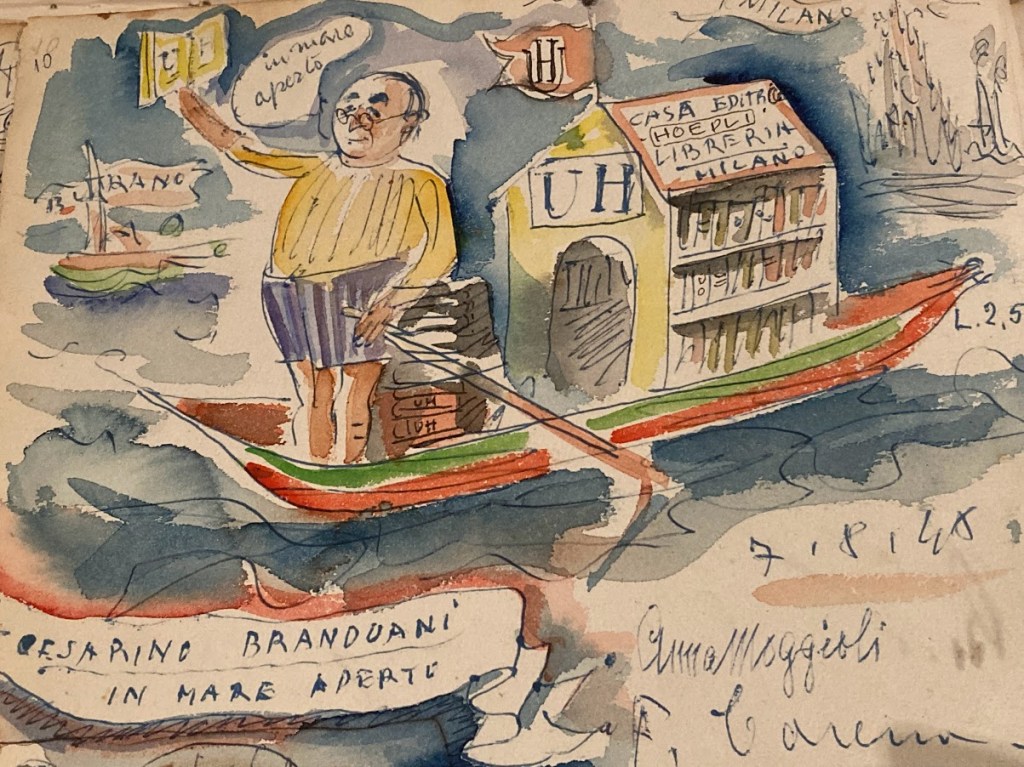 MILANO
18
UH
in mare
aperto
UH
CASA EDITRICE
HOEPLI
LIBRERIA
MILANO
UH
L. 2,5
UH
UH
7.8.48
CESARINO BRANDUANI
IN MARE APERTO
Anna Moggioli
F. Carena